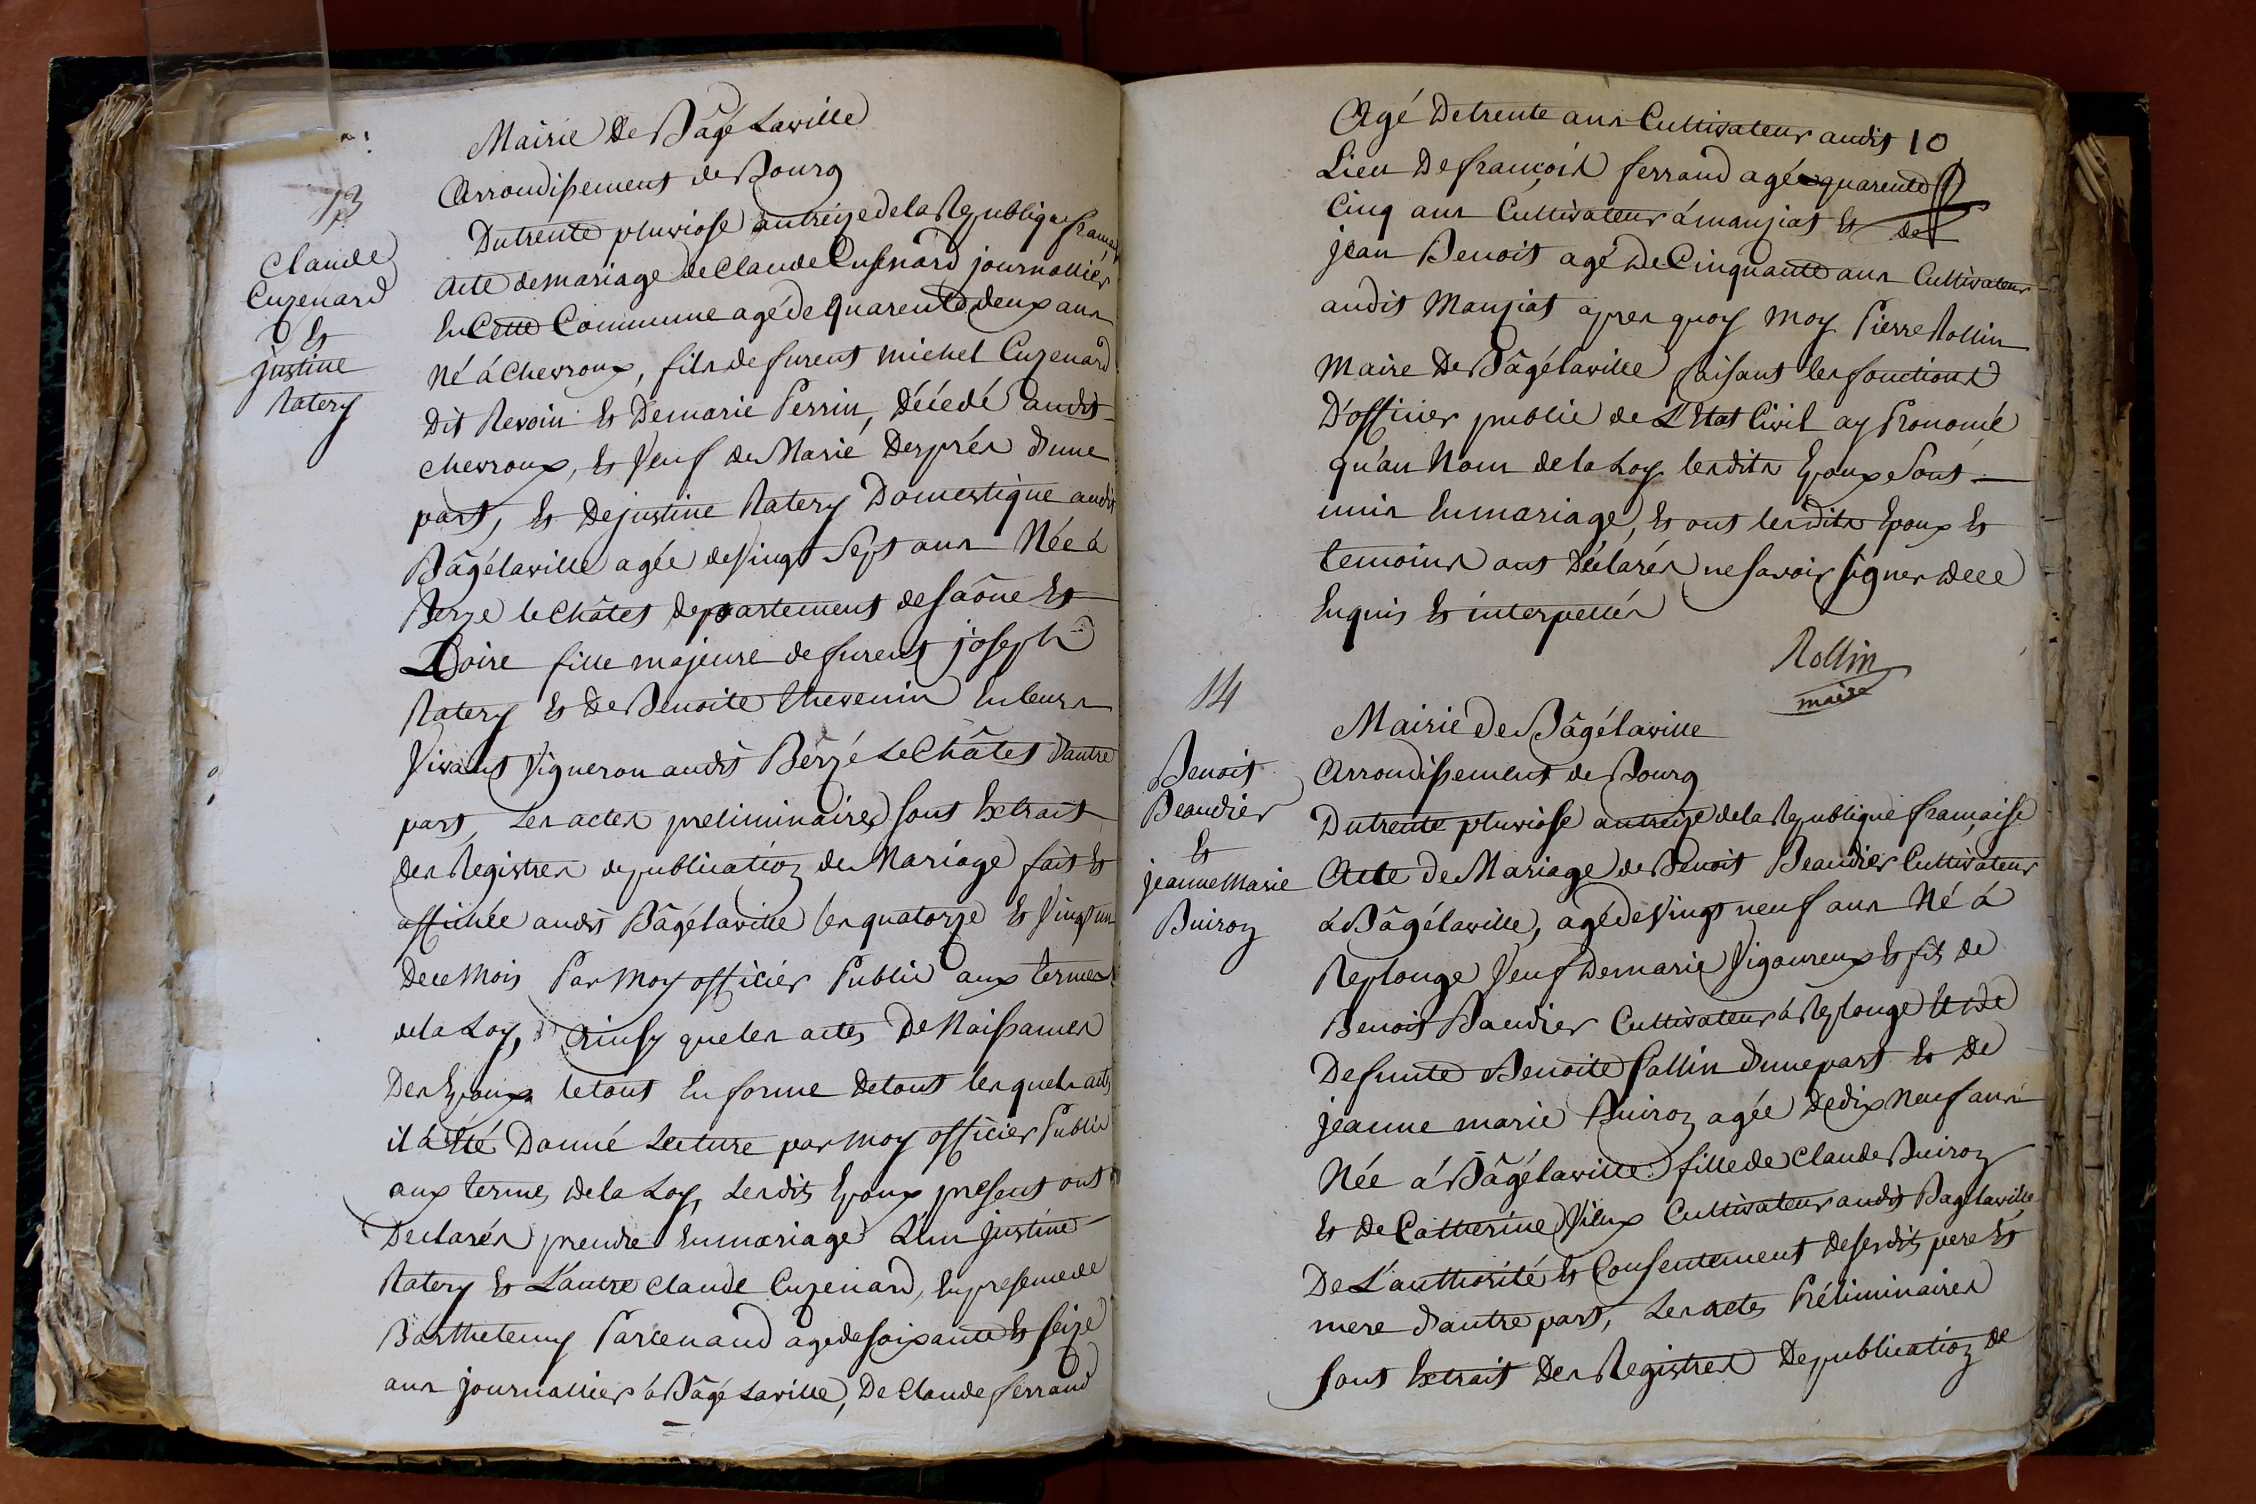 13
Claude
Cuzenard
Et
justine
Ratery
Mairie De Bâgé Laville
Arrondissement de Bourg
Du trente pluviose an treize de la Republique française
Acte de mariage de Claude Cusenard journallier
En Cette Commune agé de quarente deux ans
Né á Chevroux, fils de furent michel Cuzenard
Dit Revoin Et De marie Perrin, Décedé audit
chevroux, Et Veuf de Marie Després d'une
part, Et De justine Ratery Domestique audit
Bâgélaville agée de Vingt Sept ans Née á
Berze le Châtet Departement de Saône Et
Loire fille majeure de furent joseph
Ratery Et De Benoite thevenin En leurs
Vivants Vigneron audit Bérzé Le Châtet d'autre
part, Les actes preliminaires sont Extrait
Des Registres de publication de Mariage fait Et
affichée audit Bâgélaville les quatorze Et Vingt un
De ce Mois Par Moy officier Public aux termes
de la Loy, Ainsy que les actes De Naissances
Des Epoux le tout En forme de tout lesquels actes
il á Eté Donné Lecture par moy officier Public
aux termes de la Loy, Lesdits Epoux present ont
Declarés prendre En mariage L'un justine
Ratery Et L'autre Claude Cuzenard, En presence de
Barthelemy Parcenaud age de soixante Et seize
ans journallier á Bâgé Laville, De Claude ferrand
Agé De trente ans Cultivateur audit 10
Lieu De françois ferrand agé quarente
Cinq ans Cultivateur á manziat Et de
jean Benoit agé de Cinquante ans Cultivateur
audit Manziat apres quoy moy Pierre Rollin
Maire De Bâgélaville faisant les fonctions
D'officier public de L'Etat Civil ay Pronomé
qu'au Nom de la Loy lesdits Epoux Sont
unis En mariage, Et ont lesdits Epoux Et
temoins ont Déclarés ne savoir signer de ce
Enquis Et interpellés
Rollin
maire
14
Benoit
Beaudier
Et
jeanne Marie
Buiron
Mairie De Bâgélaville
Arrondissement de Bourg
Du trente pluviose an treize de la Republique française
Acte De Mariage de Benoit Beaudier Cultivateur
á Bâgélaville, agé de Vingt neuf ans Né á
Replonge Veuf De marie Vigoureux Et fils de
Benoit Baudier Cultivateur á Replonge Et de
Defunte Benoite Pallin d'une part Et De
jeanne marie Buiron agée De dix Neuf ans
Née á Bâgélaville fille de Claude Buiron
Et De Catherine Vieux Cultivateur audit Bagélaville
De L'authorité Et Consentement de sesdits pere Et
mere d'autre part, Les actes Préliminaires
sont Extrait Des Registres De publication de